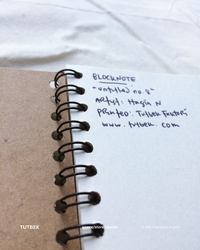 BLOCKNOTE
"untitled no. 8"
Artist: Hagia N
Printed: Tutbek Factori
www.tutbek.com
TUTBEK